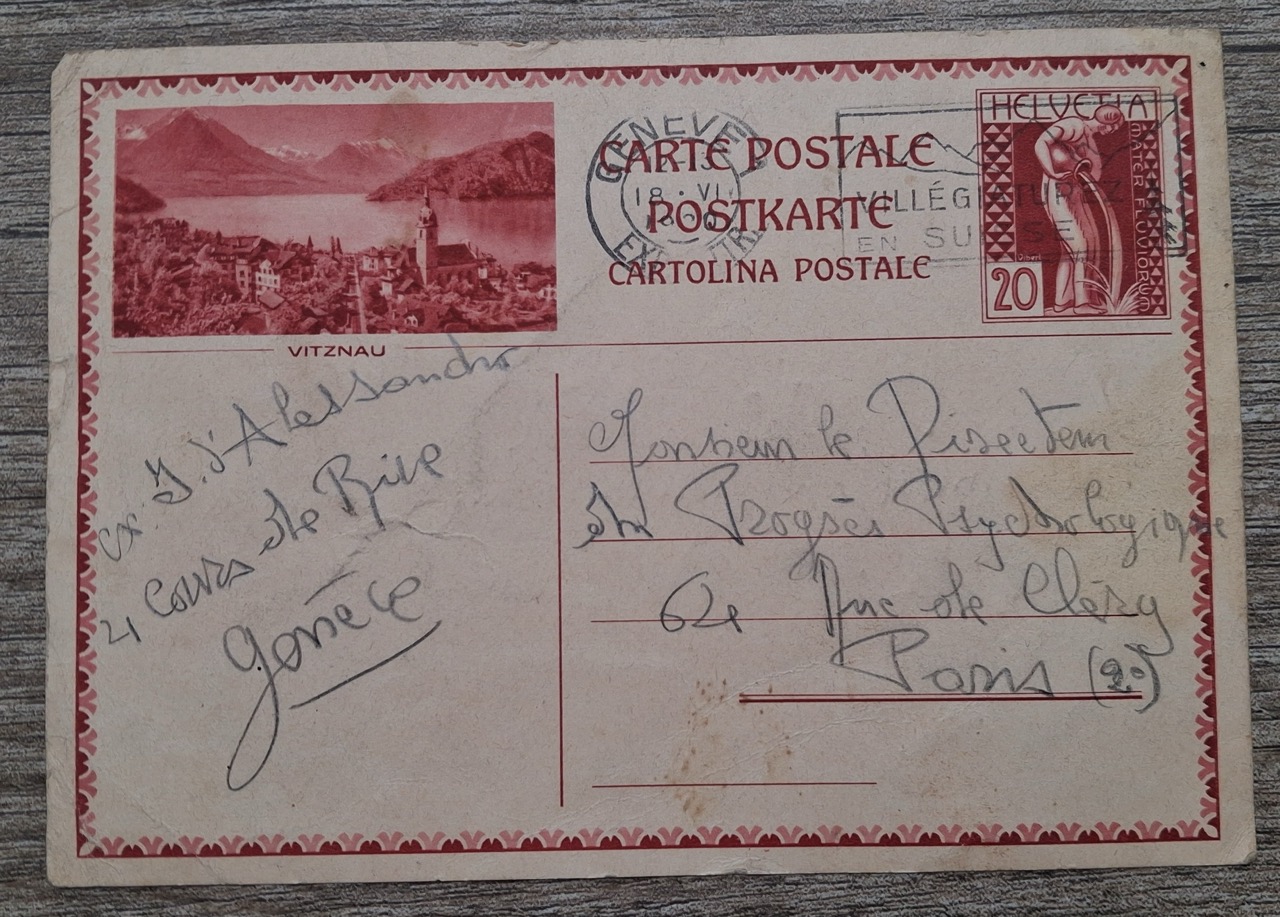 HELVETIA
MATER FLUVIORUM
20
GENÈVE 1
18.VI.
CARTE POSTALE
POSTKARTE
CARTOLINA POSTALE
VILLÉGIATUREZ
EN SUISSE
VITZNAU
J. d'Alessandro
21 Cours de Rive
Genève
Monsieur le Directeur
du Progrès Psychologique
62 Rue de Cléry
Paris (2e)